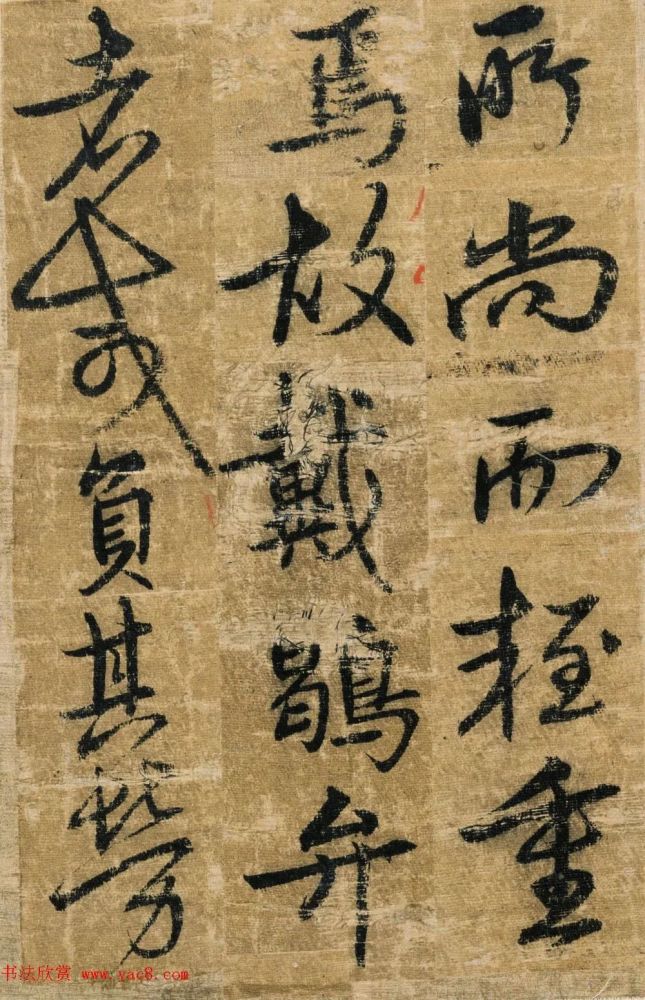 所尚而輕重
焉故戴鶡弁
者或負其勞
书法欣赏 www.yac8.com